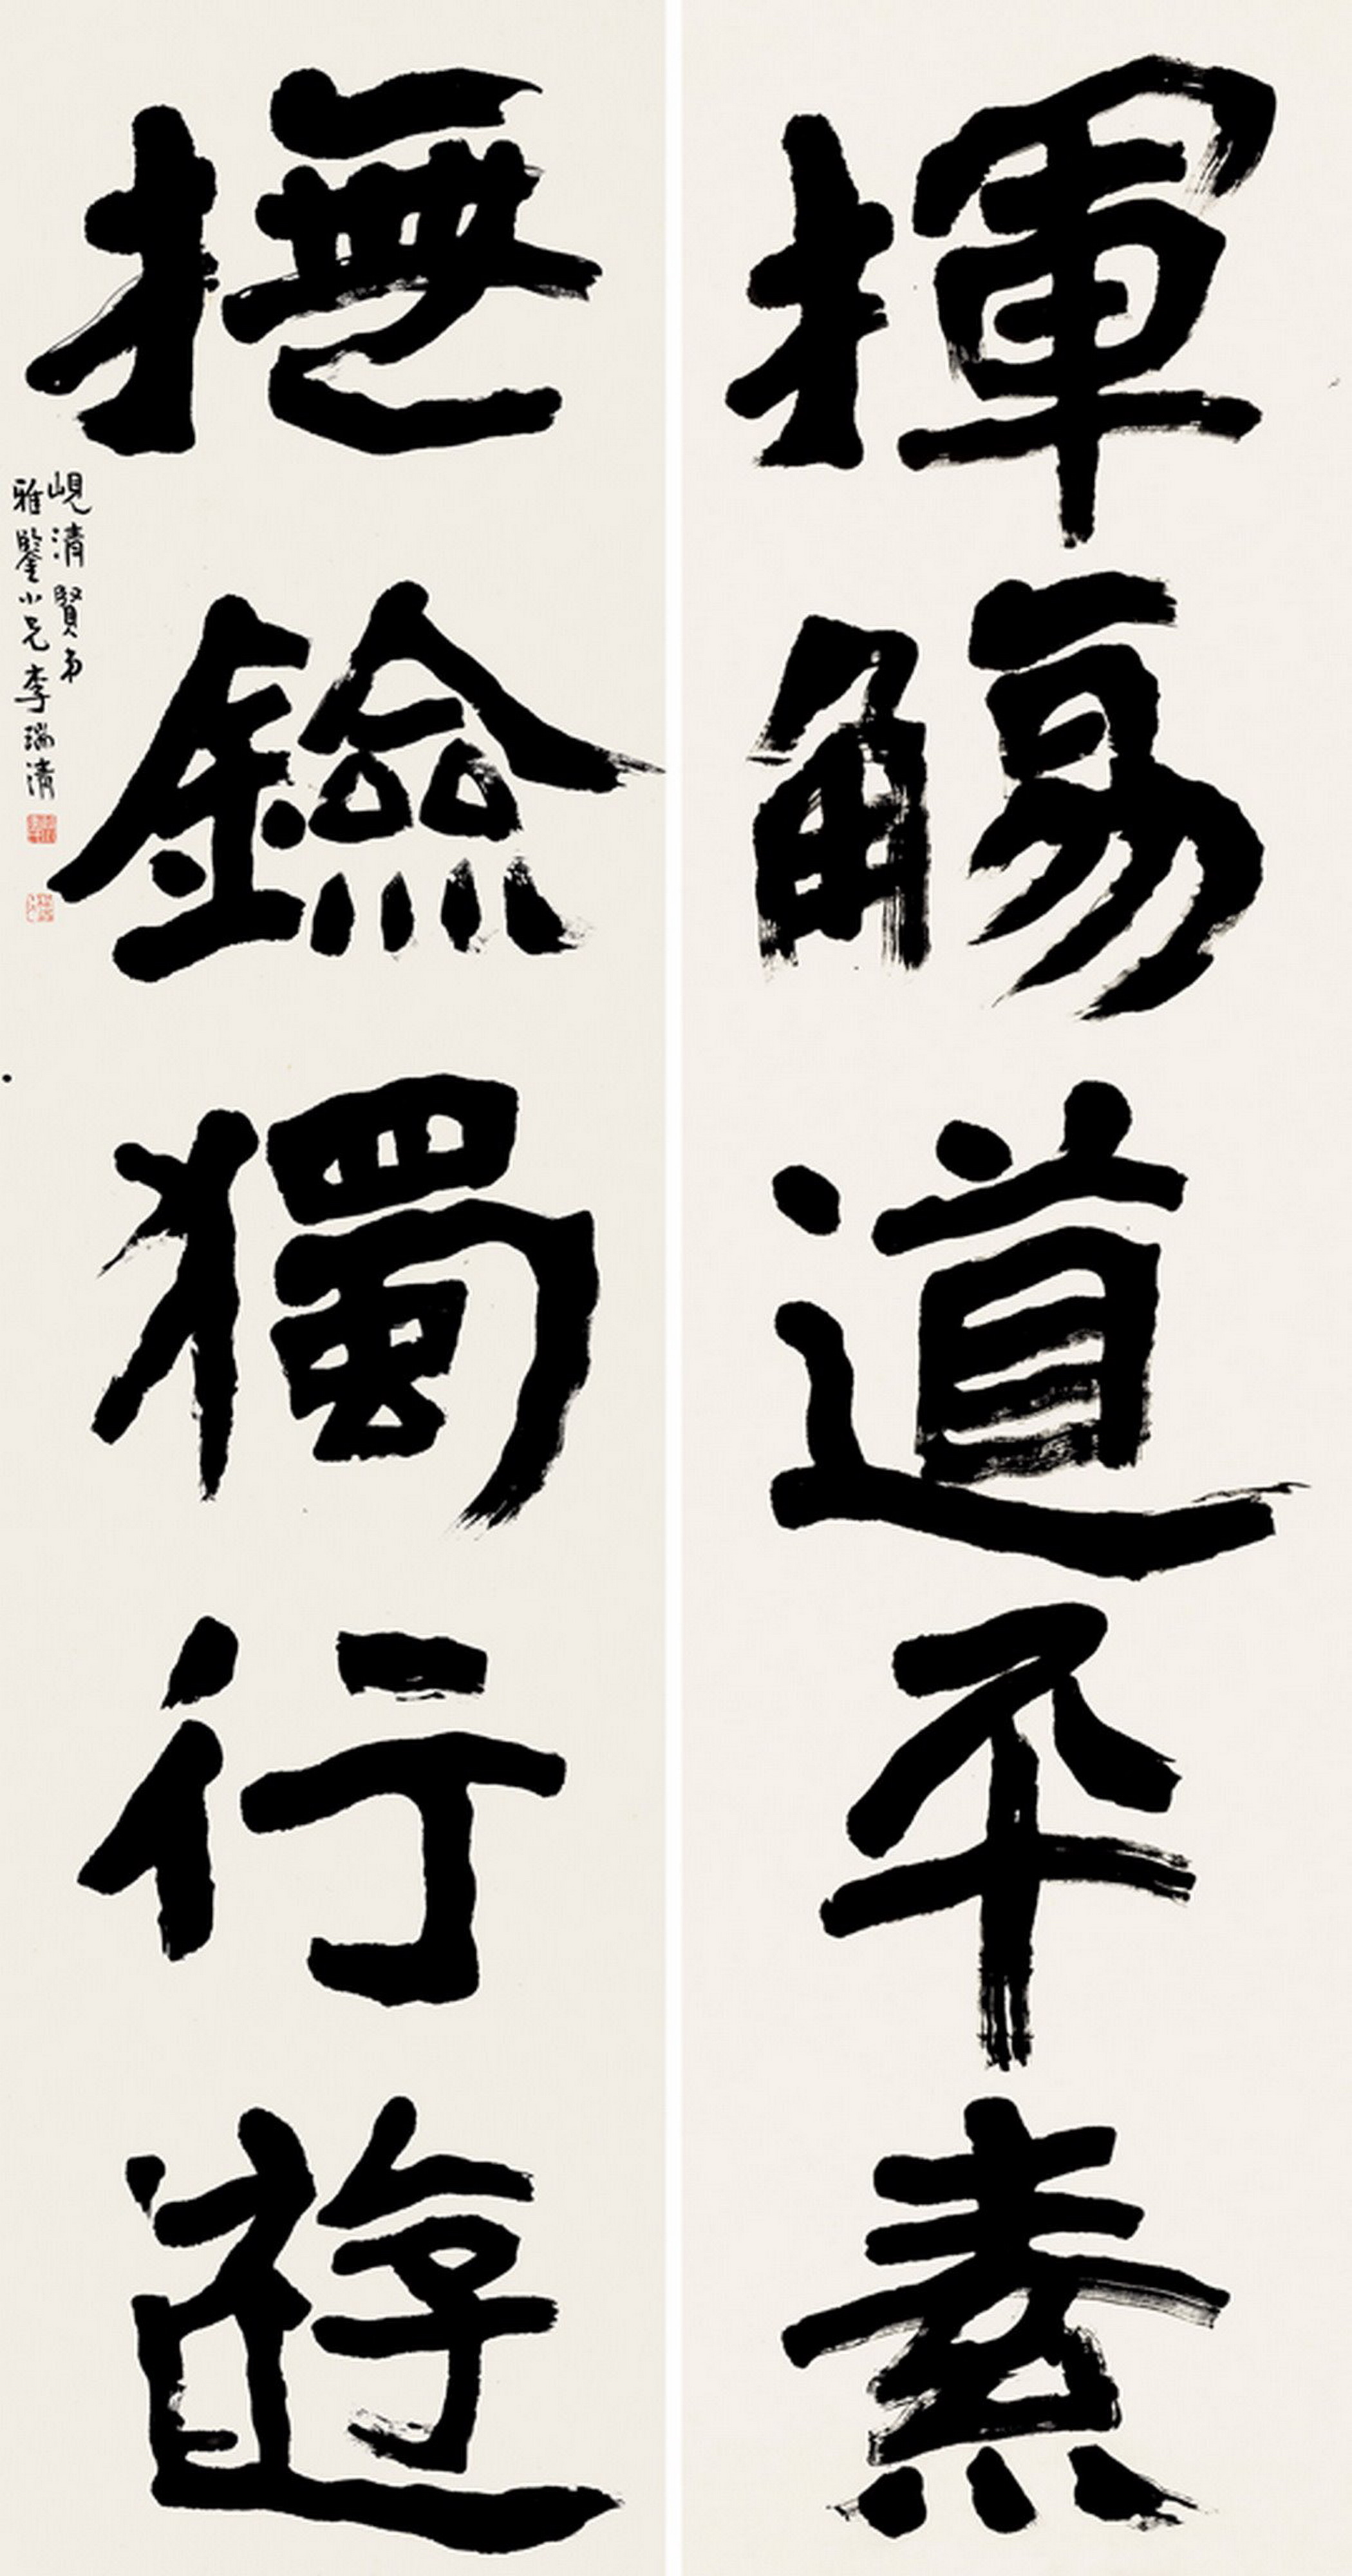 揮觴道平素
撫鐱獨行遊
峴清賢弟
雅鑒小兄李瑞清